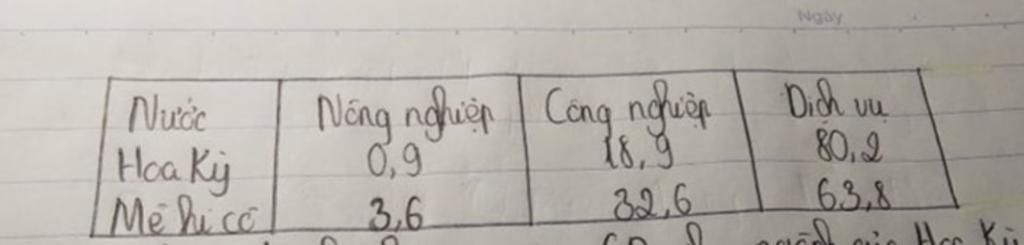 Ngày
Nước Nông nghiệp Công nghiệp Dịch vụ
Hoa Kỳ 0,9 18,9 80,2
Mê hi cô 3,6 32,6 63,8